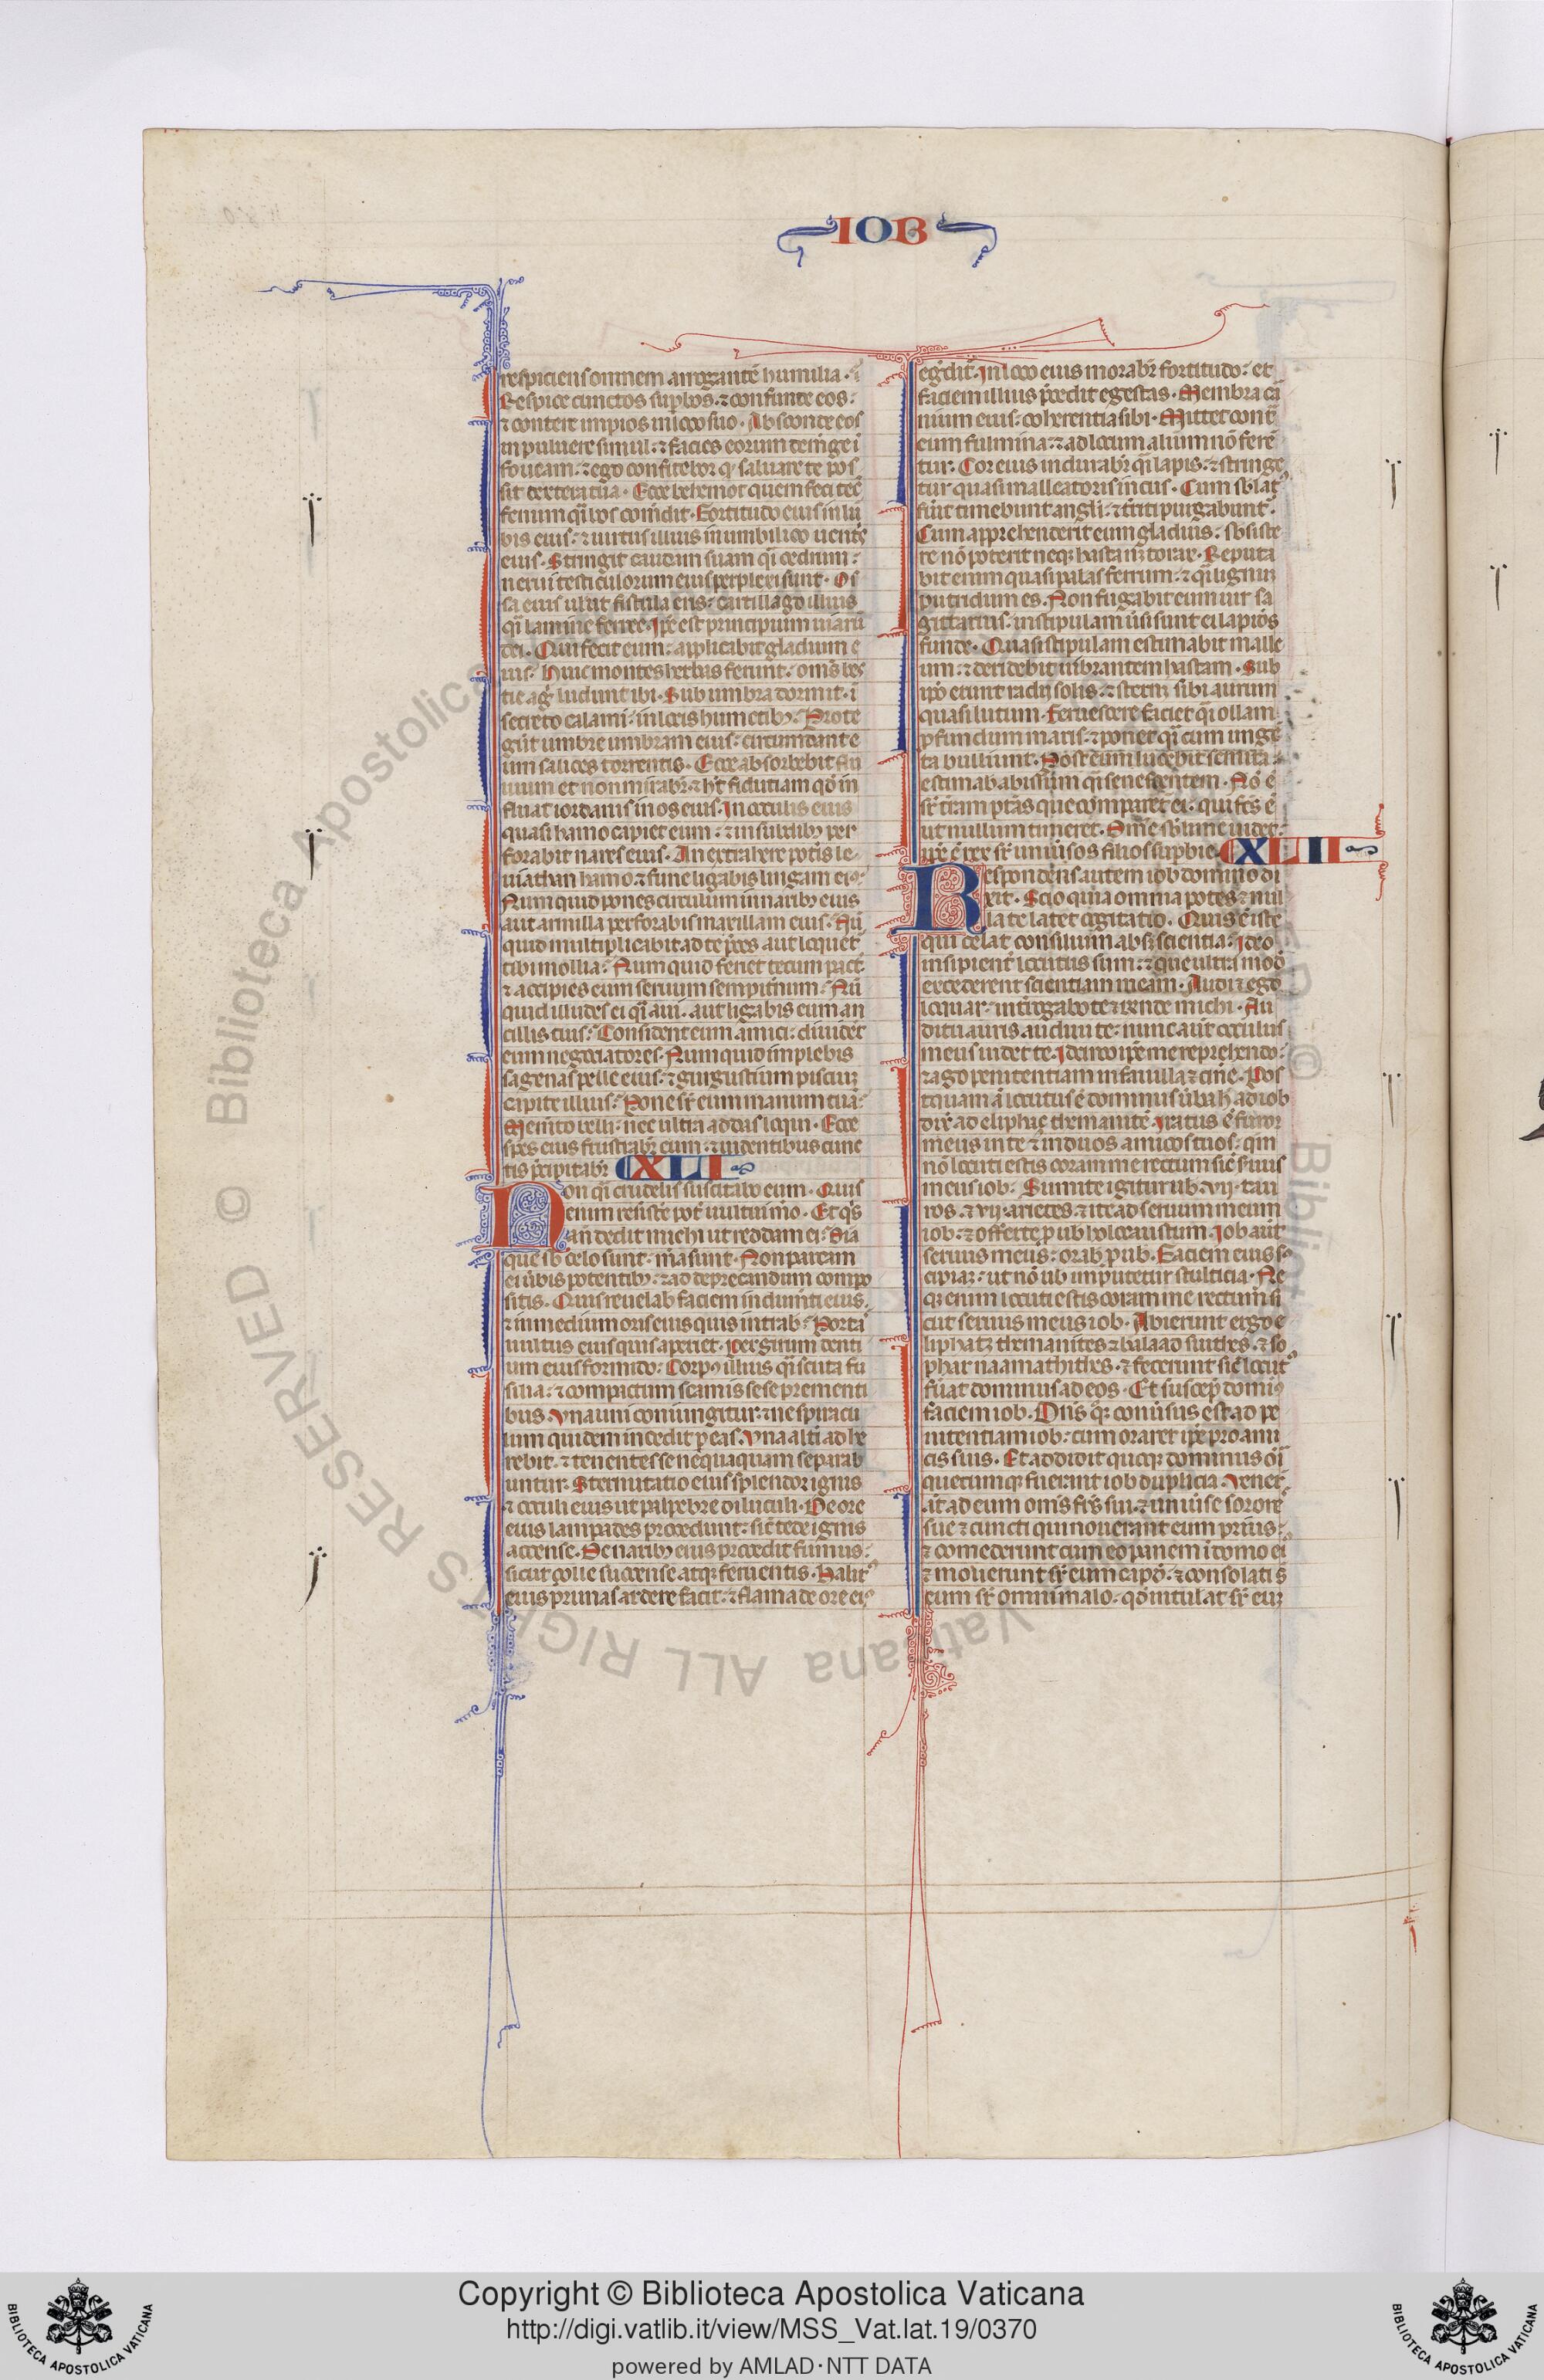 IOB
respiciens omnem arrogantē humilia · ⁊
Respice cunctos suꝑbos · ⁊ confunde eos :
⁊ contere impios in loco suo · Absconde eos
in puluere simul : ⁊ facies eorum demge ī
foueam : ⁊ ego confitebor qͥ saluare te pos
sit dextera tua · Ecce behemot quem feci tecū
fenum qͣi bos comedit · Fortitudo eius in lū
bis eius : ⁊ uirtus illius in umbilico uentͥs
eius · Stringit caudam suam qͣi cedrum :
nerui testiculorum eius perplexi sunt · Os
sa eius uelut fistula eris : cartillago illius
qͣi lamine ferree · Ip̄e est principium uiarū
dei · Qui fecit eum : applicabit gladium e
ius · Huic montes herbas ferunt : om̄s bes
tie agͥ ludunt ibi · Sub umbra dormit · ī
secreto calami : in locis humetibꝫ · Prote
gūt umbre umbram eius : circumdant e
um salices torrentis · Ecce absorbebit flu
uium et non mirabͬ : ⁊ hꝫ fidutiam qͦd in
fluat iordanis in os eius · In oculis eius
quasi hamo capiet eum : ⁊ in sudibꝫ per
forabit nares eius · An extrahere potͥs le
uiathan hamo : ⁊ fune ligabis linguam eiꝰ :
Num quid pones circulum in naribꝫ eius
aut armilla perforabis maxillam eius · Nū
quid multiplicabit ad te p̄ces aut loquet
tibi mollia : Num quid feriet tecum pactū
⁊ accipies eum seruum sempitͥnum : Nū
quid illudes ei qͣi aui · aut ligabis eum an
cillis tuis : Concident eum amici : diuidēt
eum negociatores · Num quid implebis
sagenas pelle eius : ⁊ gurgustium pisciuꝫ
capite illius : Pone sͬ eum manum tuā :
Memēto belli : nec ultra addas loqui · Ecce
spes eius frustrabͬ eum : ⁊ uidentibus cunc
tis p̄cipitabͬ CXLI
Non qͣi crudelis suscitabo eum · Quis
enim resiste potͭ uultui mō · Et qͥs
an̄ dedit michi ut reddam ei : Om̄ia
que sb celo sunt : m̄a sunt · Non parcam
ei uͥbis potentibꝫ : ⁊ ad deprecandum compo
sitis · Quis reuelab faciem indumti eius ·
⁊ in medium oris eius quis intrab : Portas
uultus eius quis aperiet · Per girum denti
um eius formido : Corpꝰ illius qͣi scuta fu
silia : ⁊ compactum scamis se se prementi
bus · Vna uni coniungitur : ⁊ ne spiracu
lum quidem incedit ꝑ eas · Vna altͥ ad he
rebit : ⁊ tenentes se nequaquam separab
untur · Sternutatio eius splendor ignis
⁊ oculi eius ut palpebre diluculi · De ore
eius lampades procedunt : sic̄ tede ignis
accense · De naribꝫ eius procedit fumus :
sicut colle succense atqꝫ feruentis · Halitꝰ
eius prunas ardere facit : ⁊ flama de ore eiꝰ
egͤditͬ · In collo eius morabͬ fortitudo : et
faciem illius p̄cedit egestas · Membra car
nium eius : coherentia sibi · Mittet contͣ
eum fulmina : ⁊ ad locum alium nō feren
tur · Cor eius indurabͬ qͣi lapis : ⁊ stringe
tur quasi malleatoris incus · Cum sblatꝰ
fuͥt timebunt angli : ⁊ tͥriti purgabunt ·
Cum apprehenderit eum gladius : sbsiste
re nō poterit neqꝫ hasta nꝫ torax · Reputa
bit enim quasi palas ferrum : ⁊ qͣi lignuꝫ
putridum es · Non fugabit eum uir sa
gittarius : in stipulam uͥsi sunt ei lapides
funde · Quasi stipulam estimabit malle
um : ⁊ deridebit uibrantem hastam · Sub
ipō erunt radij solis : ⁊ sternꝫ sibi aurum
quasi lutum · Feruescere faciet qͣi ollam
ꝓfundum maris : ⁊ ponet qͣi cum ungē
ta bulliunt · Post eum lucebit semita :
estimab abissum qͣi senescentem · Nō ē
sͬ terram ptās que comparet ei · qui fc̄s ē
ut nullum timeret · Om̄e sblime uidet :
ip̄e ē rex sͬ uniuͥsos filios suꝑbie CXLII
Respondens autem iob domino di
xit · Scio quia omnia potes ⁊ nul
la te latet cogitatio · Quis ē iste
qui celat consilium absqꝫ scientia : Ideo
insipientͬ locutus sum : ⁊ que ultra modū
excederent scientiam meam · Audi ⁊ ego
loquar : intͬrogabo te ⁊ rͥnde michi · Au
ditu auris audiui te : nunc aūt oculus
meus uidet te · Idcirco ip̄e me reprehendo :
⁊ ago penitentiam in fauilla ⁊ cinͤe · Pos
tquam ā locutus ē dominus uͥba hͨ ad iob
dixͭ ad eliphaꝫ themanitē · Iratus ē furor
meus in te ⁊ in duos amicos tuos : qm̄
nō locuti estis coram me rectum sic̄ seruus
meus iob · Sumite igitur ub · vij · tau
ros · ⁊ vij · arietes · ⁊ ite ad seruum meum
iob : ⁊ offerte ꝓ ub holocaustum · Iob aūt
seruus meus : orab ꝓ ub · Faciem eius sꝰ
cipiaꝫ : ut nō ub imputetur stulticia · Ne
qꝫ enim locuti estis coram me rectum si
cut seruus meus iob · Abierunt ergo e
liphatꝫ themanites ⁊ balaad suithes · ⁊ so
phar naamathithes · ⁊ fecerunt sic̄ locutꝰ
fuͥat dominus ad eos · Et suscepͭ dominꝰ
faciem iob · Dn̄s qͦꝫ conuͥsus est ad pe
nitentiam iob : cum oraret ip̄e pro ami
cis suis · Et addidit quoqꝫ dominus oīa
quecumqꝫ fuerant iob duplicia · Venert
āt ad eum om̄s frs̄ sui · ⁊ uniuͥse sorores
sue ⁊ cuncti qui nouerant eum prius :
⁊ comederunt cum eo panem ī domo eiꝰ
⁊ mouerunt sͬ eum capd · ⁊ consolati s̄
eum sͬ omni malo · qͦd intulͣat sͬ euꝫ
Copyright © Biblioteca Apostolica Vaticana
http://digi.vatlib.it/view/MSS_Vat.lat.19/0370
powered by AMLAD·NTT DATA
BIBLIOTECA APOSTOLICA VATICANA
BIBLIOTECA APOSTOLICA VATICANA
© Biblioteca Apostolica Vaticana ALL RIGHTS RESERVED